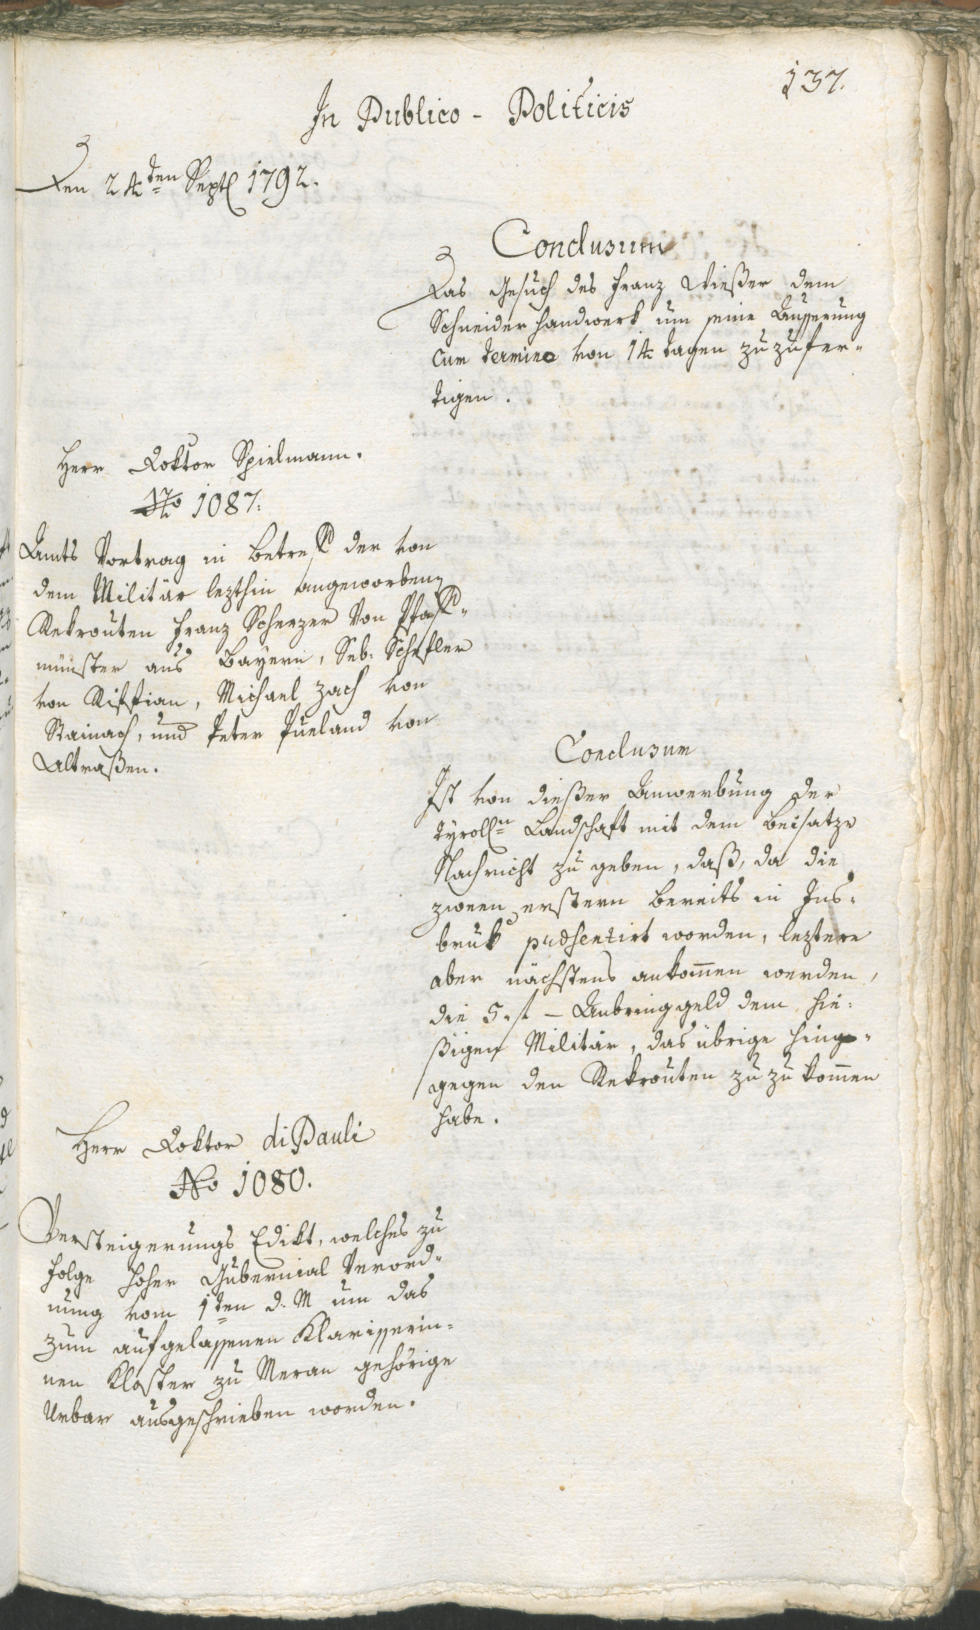 137.
In Publico - Politicis
Den 24ten Septe 1792.
Conclusum
Das Gesuch des Franz Wießer dem
Schneider handwerk um seine Äusserung
cum termino von 14 tagen zuzufer-
tigen.
Herr Doktor Spielmann.
No 1087.
Amts Vortrag in Betreff der von
dem Militär lezthin angeworbenen
Rekrouten Franz Scherzer von Pfaff-
münster aus Bayern, Seb. Schifler
von Riffian, Michael Zach von
Stainach, und Peter Pueland von
Altraßen.
Conclusum
Ist von dießer Anwerbung der
tyrolln Landschaft mit dem Beisatze
Nachricht zu geben, daß, da die
zween erstern bereits in Ins-
bruk præsentirt worden, leztere
aber nächstens ankommen werden,
die 5 f - Anbringgeld dem hie-
ßigen Militär, das übrige hinge-
gegen den Rekrouten zuzukommen
habe.
Herr Doktor di Pauli
No 1080.
Versteigerungs Edikt, welches zu
folge hoher Gubernial Verord-
nung vom 1ten d. M um das
zum aufgelassenen Klarisserin-
nen Kloster zu Meran gehörige
Urbar ausgeschrieben worden.